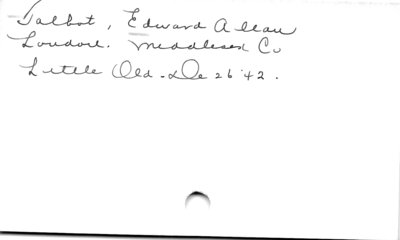 Talbot, Edward Allan
London. Middlesex Co
Little Old. De 26 '42.